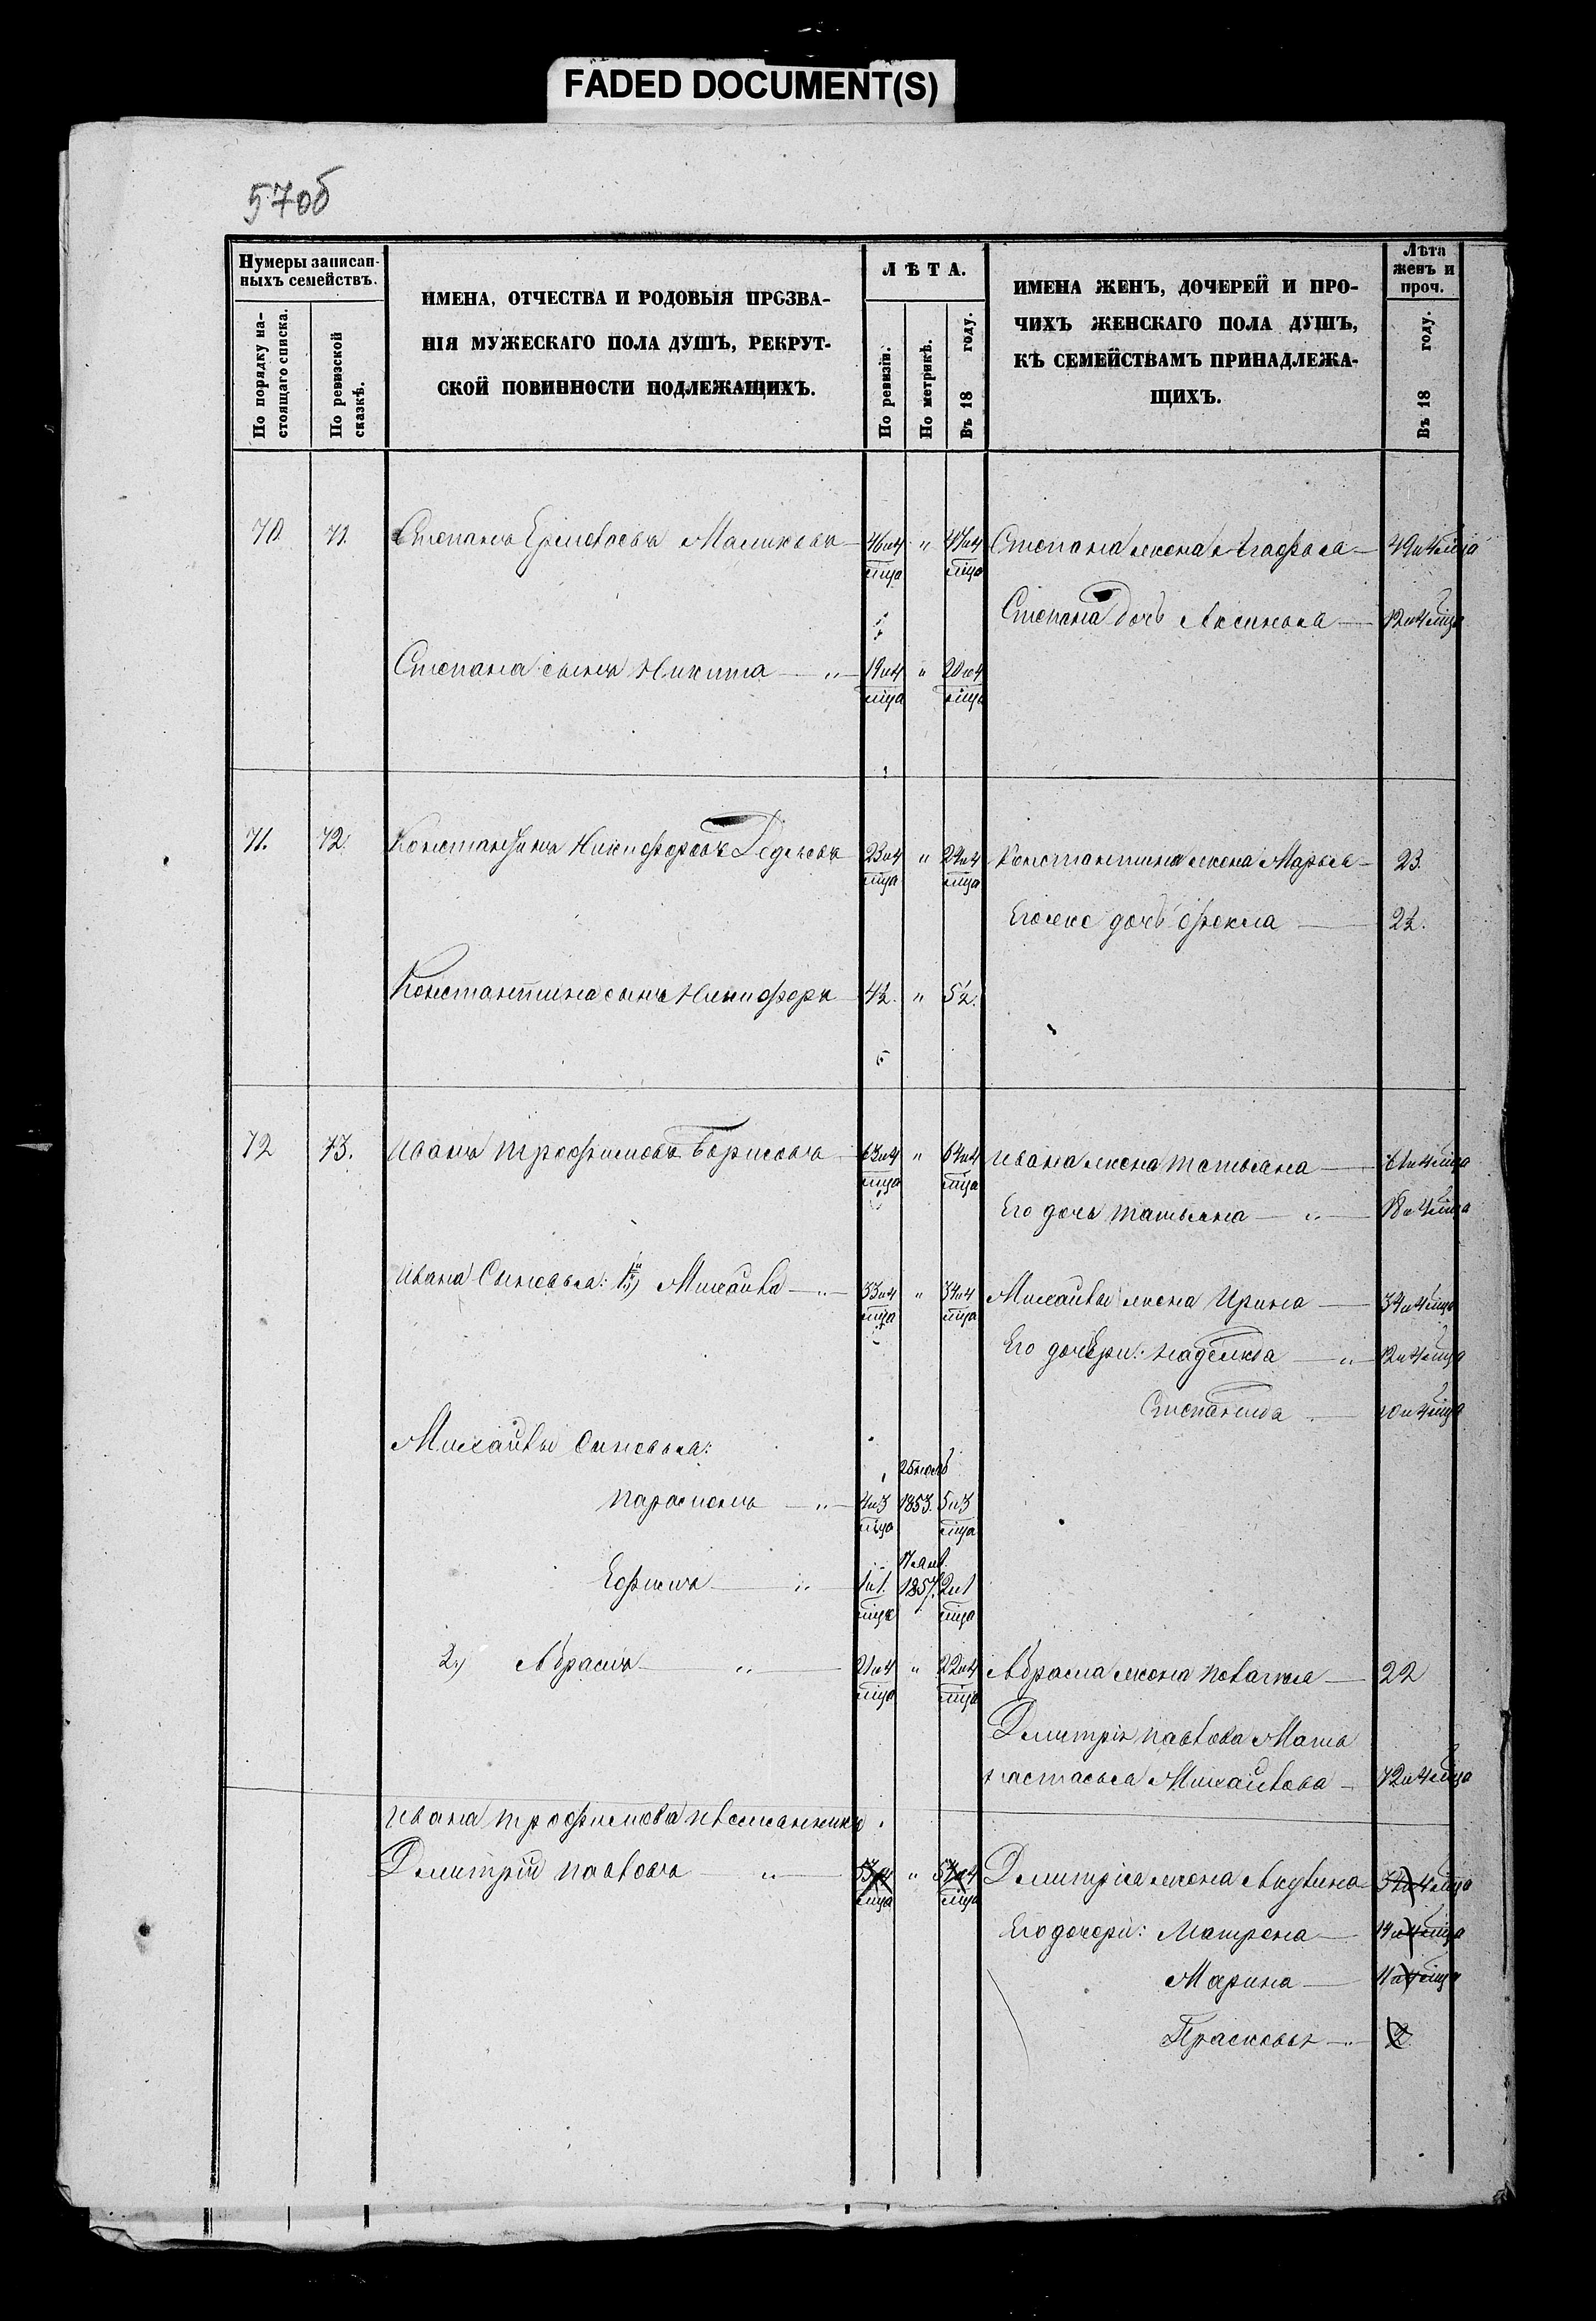 FADED DOCUMENT(S)
57об
Нумеры записан-
ныхъ семействъ.
По порядку на-
стоящаго списка.
По ревизской
сказкѣ.
ИМЕНА, ОТЧЕСТВА И РОДОВЫЯ ПРОЗВА-
НІЯ МУЖЕСКАГО ПОЛА ДУШЪ, РЕКРУТ-
СКОЙ ПОВИННОСТИ ПОДЛЕЖАЩИХЪ.
ЛѢТА.
По ревизіи.
По метрикѣ.
Въ 18 году.
ИМЕНА ЖЕНЪ, ДОЧЕРЕЙ И ПРО-
ЧИХЪ ЖЕНСКАГО ПОЛА ДУШЪ,
КЪ СЕМЕЙСТВАМЪ ПРИНАДЛЕЖА-
ЩИХЪ.
Лѣта
женъ и
проч.
Въ 18 году.
70. 71. Степанъ Маликовъ 46 и 4 мца " 47 и 4 мца Степана жена Агафья 49 и 4 мца
Степана дочь Аксинья 12 и 4 мца
Степана сынъ Никита " 19 и 4 мца " 20 и 4 мца
71. 72. Константинъ Никифоровъ 23 и 4 мца " 24 и 4 мца Константина жена Марья 23.
Его же дочь Фекла
Константина сынъ Никифоръ 4½. " 5½.
72 73. Иванъ Трофимовъ Борисовъ 63 и 4 мца " 64 и 4 мца Ивана жена Татьяна 61 и 4 мца
Его дочь Татьяна " 18 и 4 мца
Ивана сыновья: 1й) Михайла " 33 и 4 мца " 34 и 4 мца Михайлы жена Ирина 34 и 4 мца
Его дочери: Надежда " 12 и 4 мца
Степанида 10 и 4 мца
Михайлы сыновья:
Парамонъ " 4 и 3 мца 1853. 5 и 3 мца
Ефимъ " 1 и 1 мца 1857. 2 и 1 мца
2й) Абрамъ " 21 и 4 мца " 22 и 4 мца Абрама жена Пелагея 22
Дмитрія Павлова Мать
Настасья Михайлова 72 и 4 мца
Ивана Трофимова племянникъ
Дмитрій Павловъ " 53 и 4 мца " 54 и 4 мца Дмитрія жена Акулина 34 и 4 мца
Его дочери: Матрена 14 и 4 мца
Марина 11 и 4 мца
Прасковья " 2